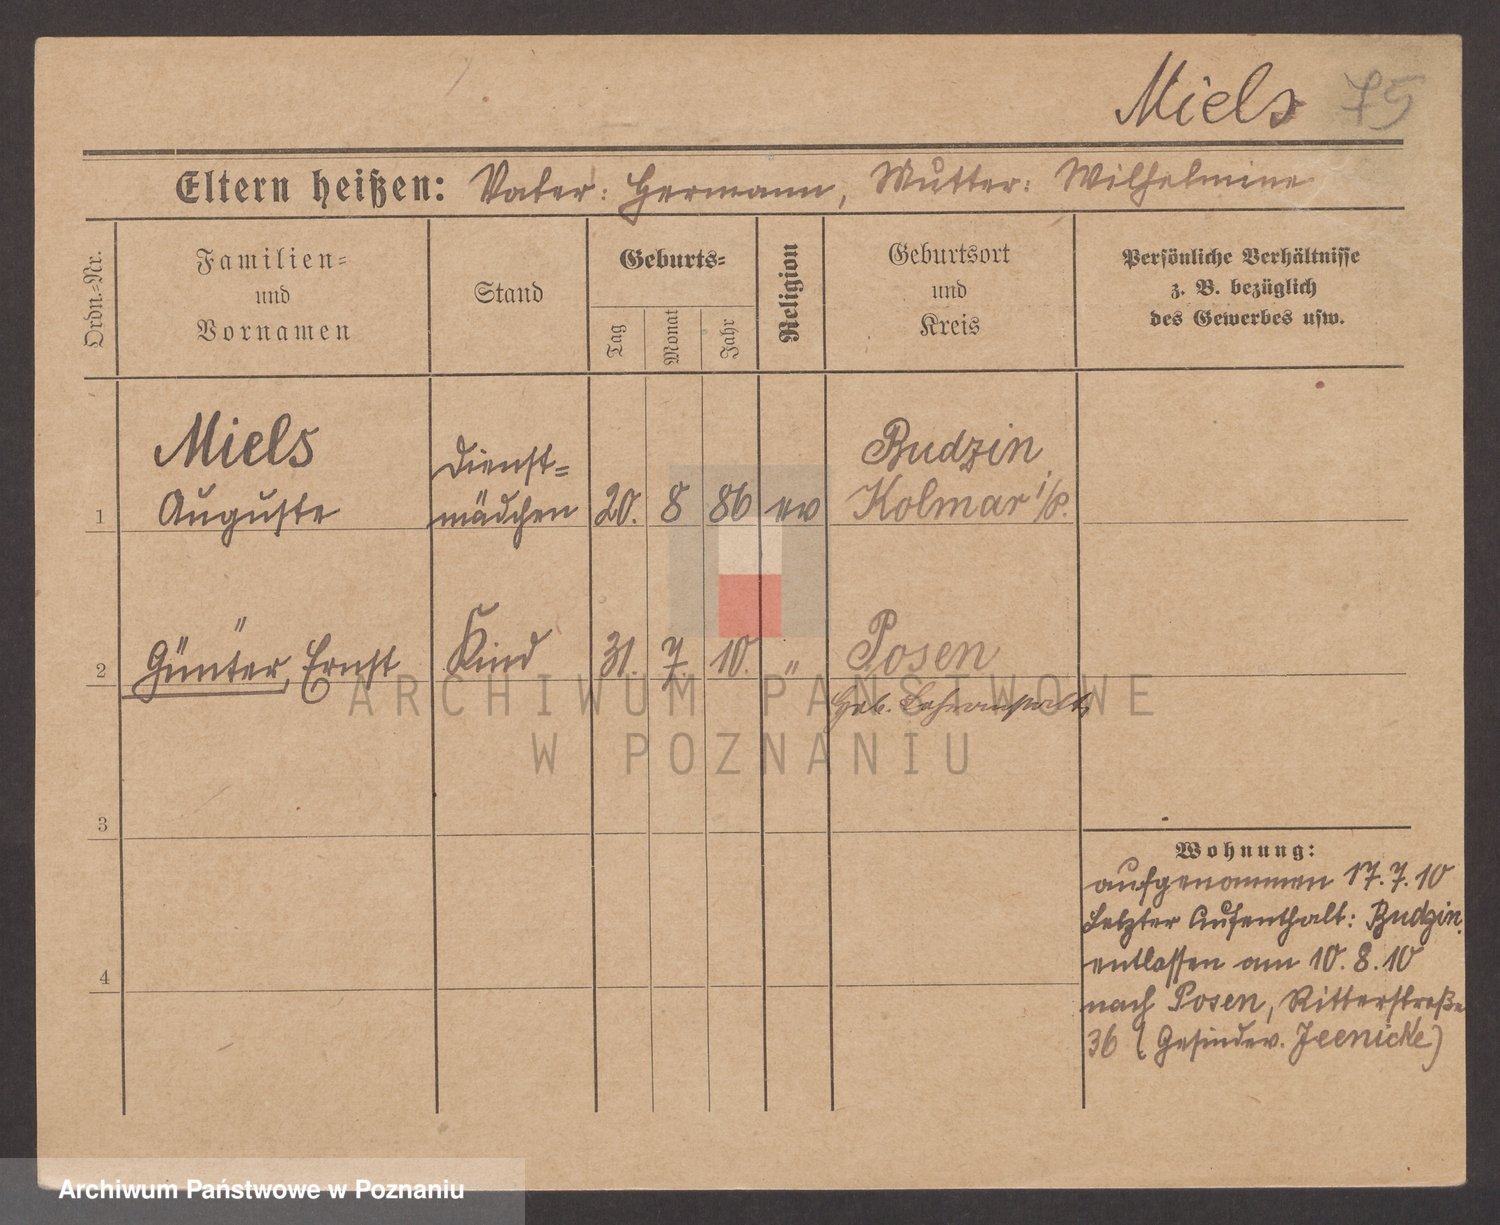 Miels 75
Eltern heißen: Vater: Hermann, Mutter: Wilhelmine
Ordn.-Nr.
Familien-
und
Vornamen
Stand
Geburts-
Tag
Monat
Jahr
Religion
Geburtsort
und
Kreis
Persönliche Verhältnisse
z. B. bezüglich
des Gewerbes usw.
Miels
Auguste
Dienst-
mädchen
20. 8 86 ev
Budzin
Kolmar i/P.
1
"
2 Günter, Ernst Kind 31. 7. 10. " Posen
Heb. Lehranstalt
3
4
Wohnung:
aufgenommen 17.7.10
Letzter Aufenthalt: Budzin.
entlassen am 10.8.10
nach Posen, Ritterstraße
36 (Gesindev. Jeenicke)
ARCHIWUM PAŃSTWOWE
W POZNANIU
Archiwum Państwowe w Poznaniu